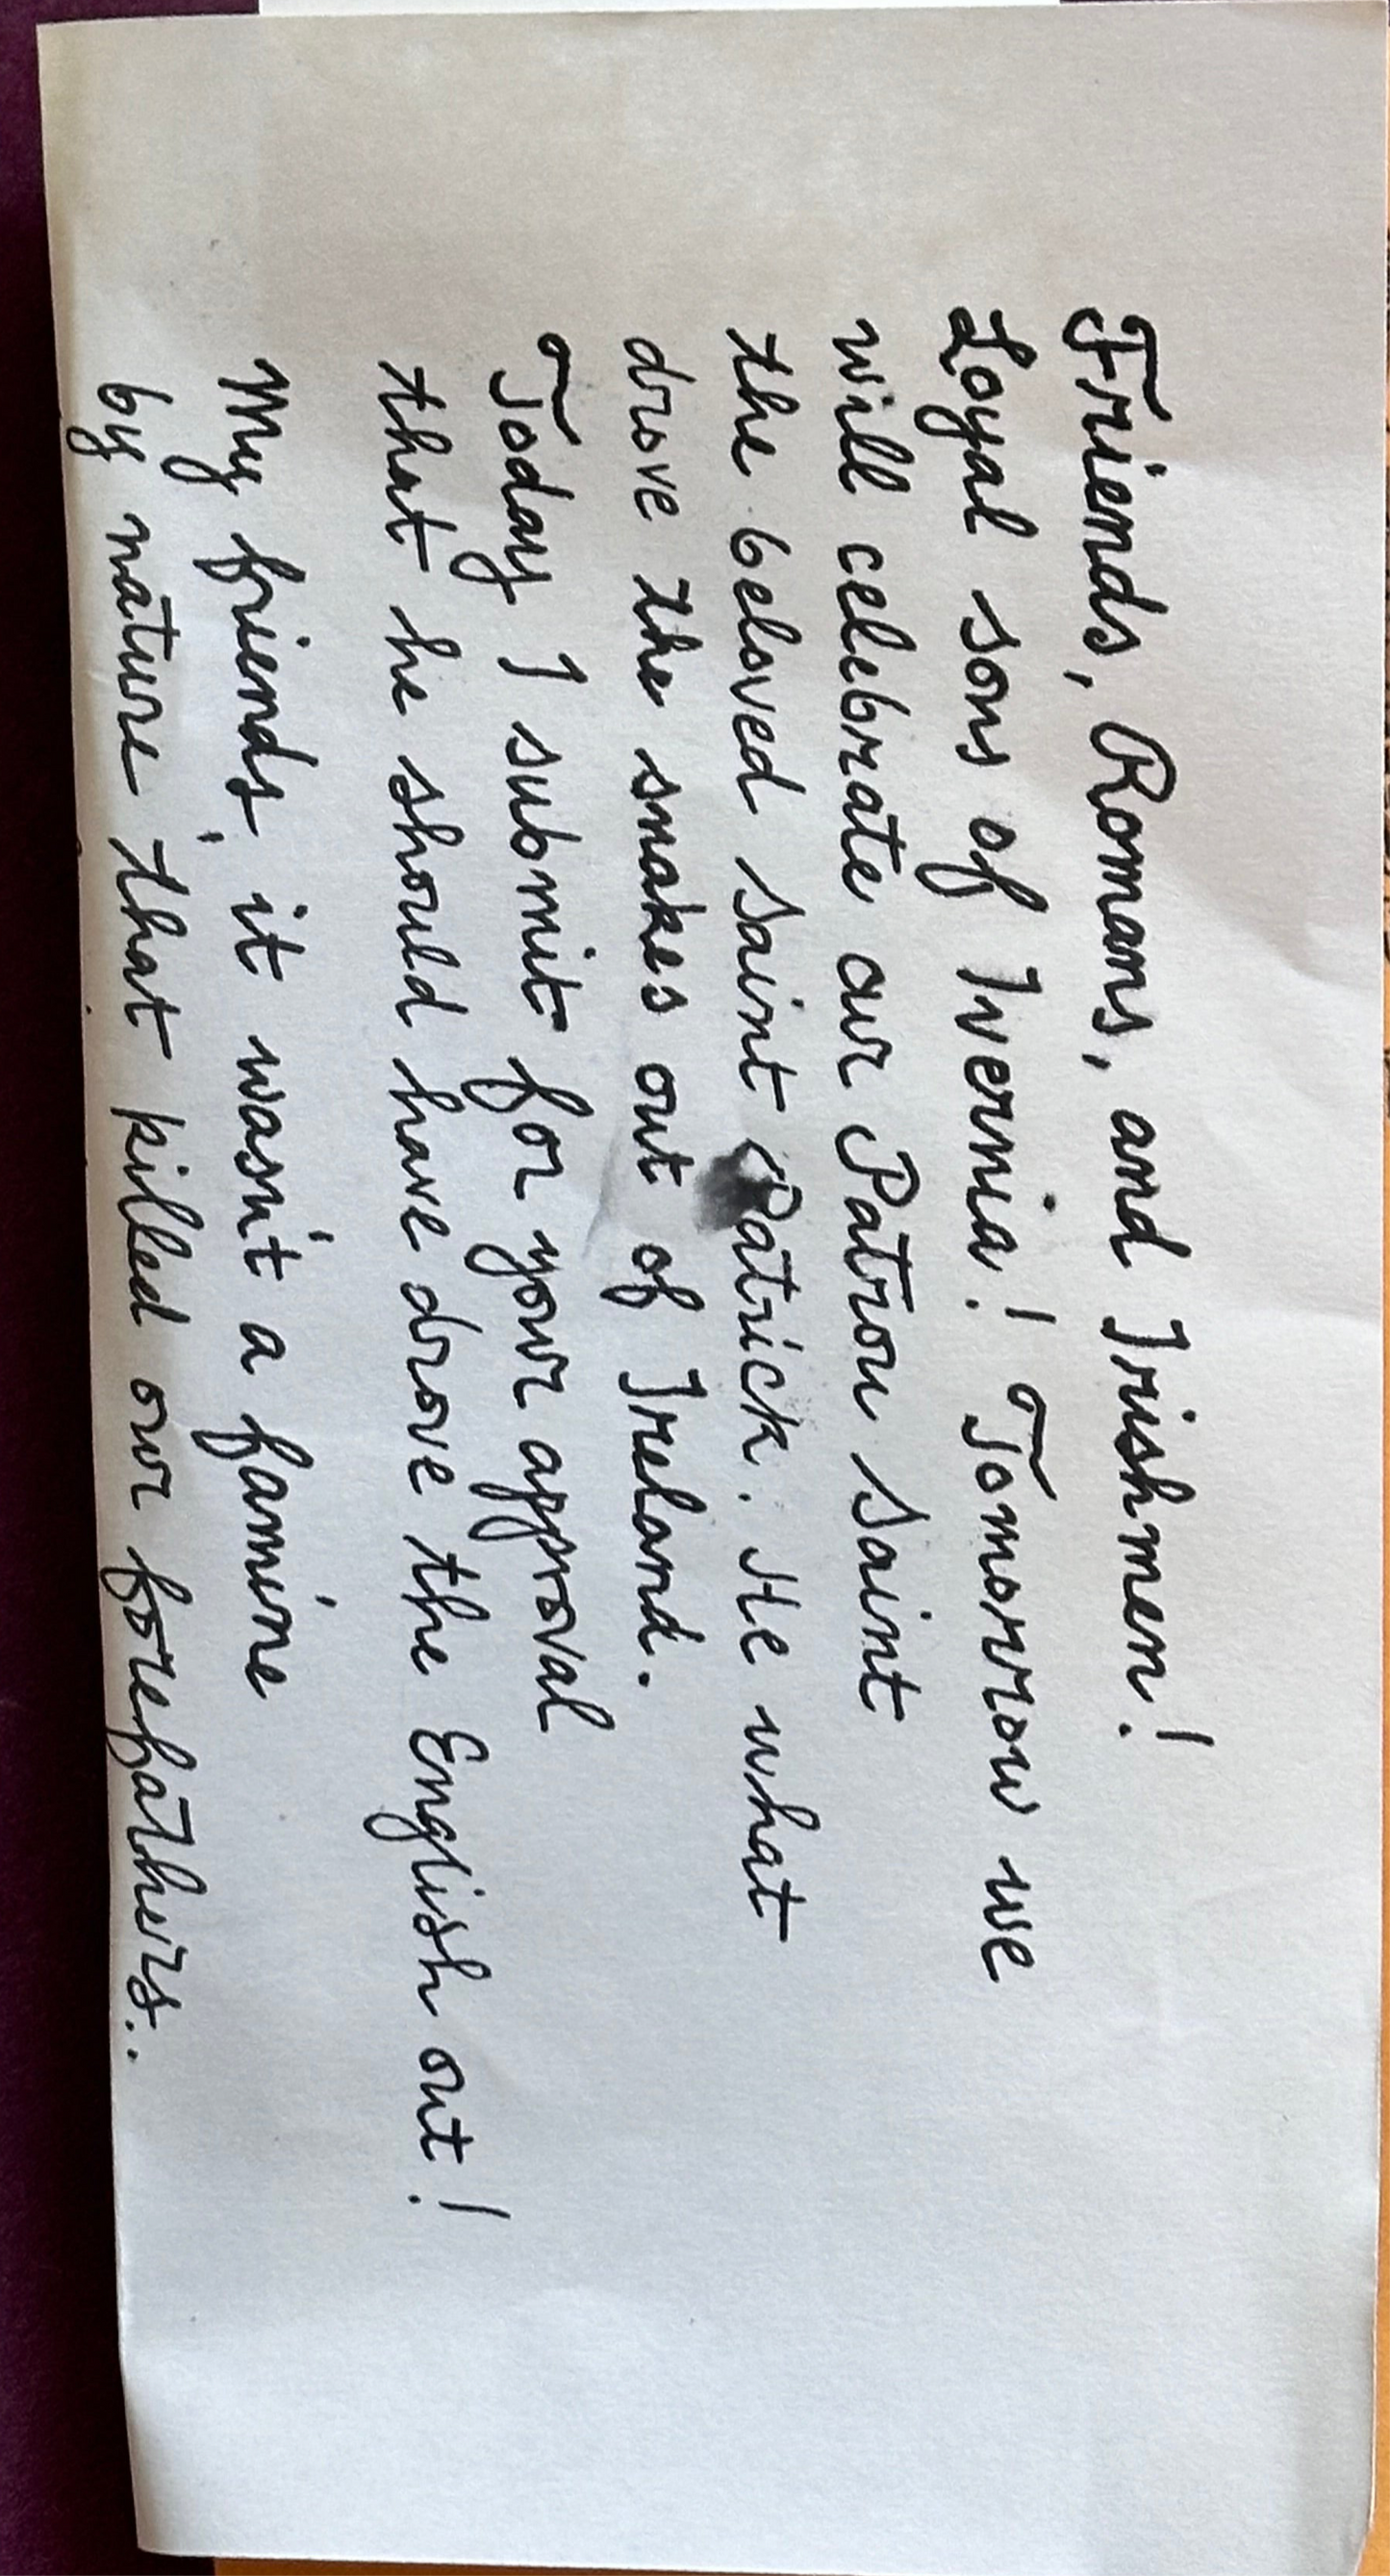 Friends, Romans, and Irishmen!
Loyal sons of Ivernia! Tomorrow we
will celebrate our Patron Saint
the beloved Saint Patrick. He what
drove the snakes out of Ireland.
Today I submit for your approval
that he should have drove the English out!
My friends, it wasn't a famine
by nature that killed our forefathers..